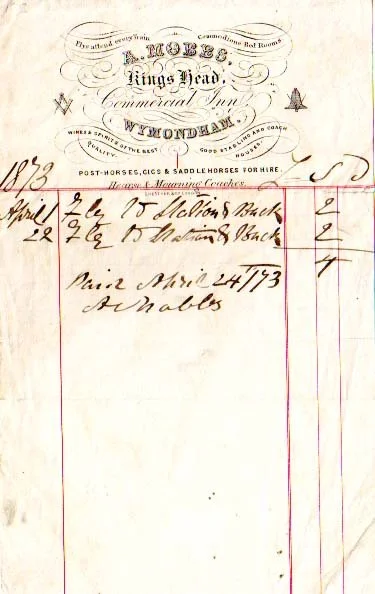 Flys attend every Train
Commodious Bed Rooms.
A. MOBBS.
Kings Head.
Commercial Inn
WYMONDHAM.
WINES & SPIRITS OF THE BEST QUALITY.
GOOD STABLING AND COACH HOUSES.
POST-HORSES, GIGS & SADDLE HORSES FOR HIRE.
Hearse & Mourning Coaches.
1873 £ S D
April 1 Fly to Station & Back 2
22 Fly to Station & Back 2
4
Paid April 24/73